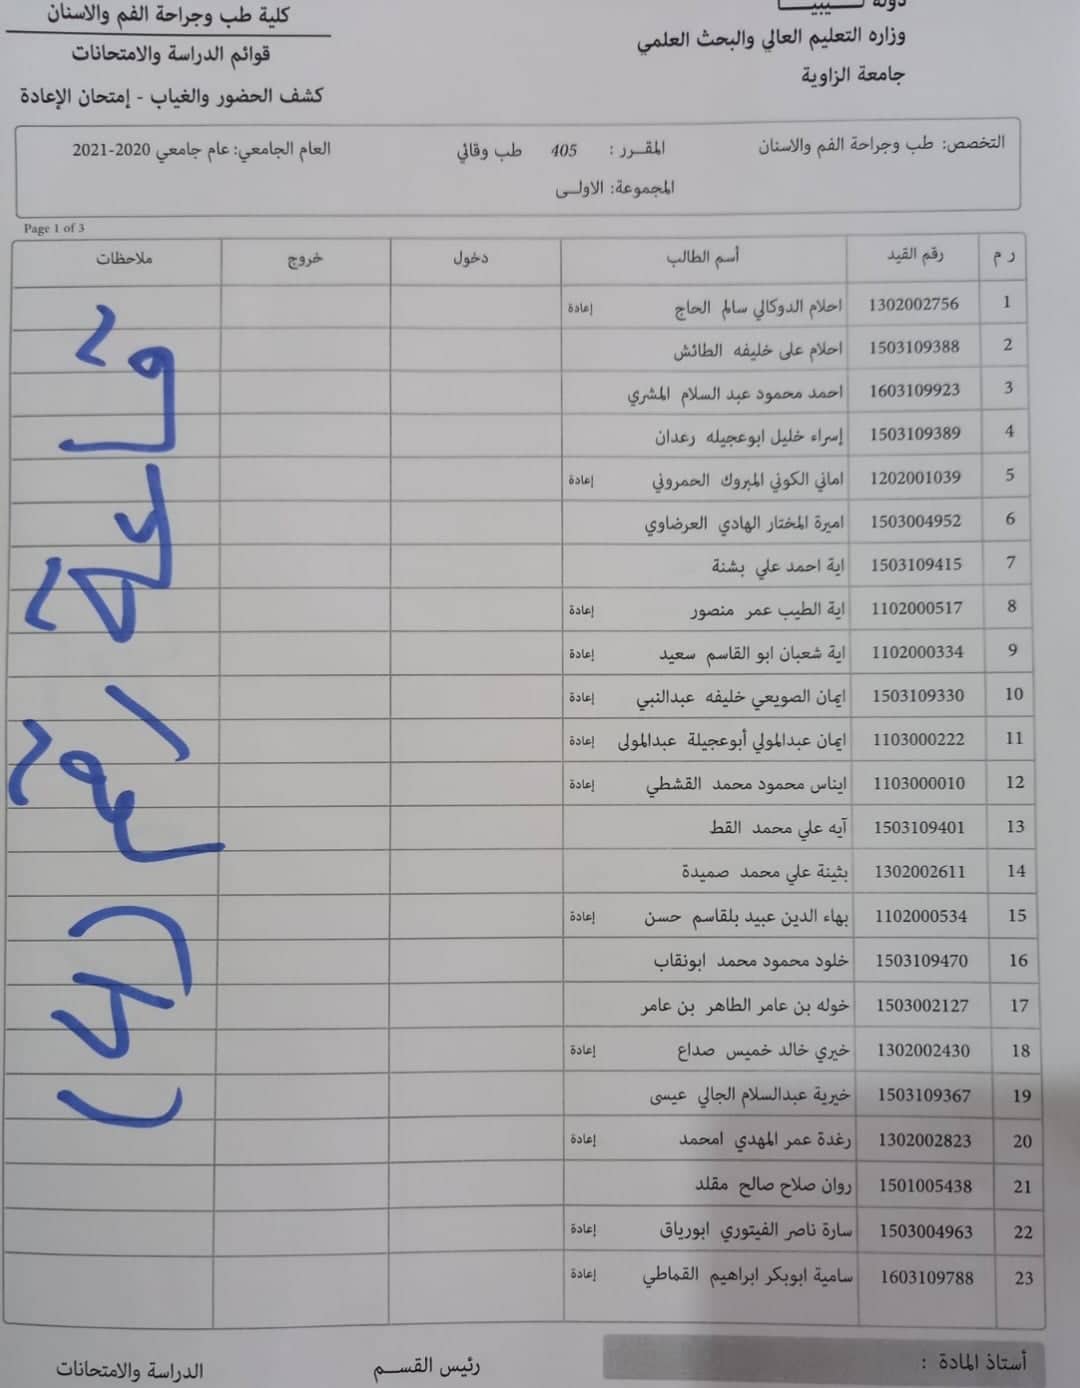 دولة ليبيا
وزاره التعليم العالي والبحث العلمي
جامعة الزاوية
كلية طب وجراحة الفم والاسنان
قوائم الدراسة والامتحانات
كشف الحضور والغياب - إمتحان الإعادة
التخصص: طب وجراحة الفم والاسنان المقرر : 405 طب وقائي العام الجامعي: عام جامعي 2020-2021
المجموعة: الاولى
Page 1 of 3
ر م رقم القيد أسم الطالب دخول خروج ملاحظات
1 1302002756 احلام الدوكالي سالم الحاج إعادة
2 1503109388 احلام على خليفه الطائش
3 1603109923 احمد محمود عبد السلام المشري
4 1503109389 إسراء خليل ابوعجيله رعدان
5 1202001039 اماني الكوني المبروك الحمروني إعادة
6 1503004952 اميرة المختار الهادي العرضاوي
7 1503109415 اية احمد علي بشنة
8 1102000517 اية الطيب عمر منصور إعادة
9 1102000334 اية شعبان ابو القاسم سعيد إعادة
10 1503109330 ايمان الصويعي خليفه عبدالنبي إعادة
11 1103000222 ايمان عبدالمولي أبوعجيلة عبدالمولى إعادة
12 1103000010 ايناس محمود محمد القشطي إعادة
13 1503109401 آيه علي محمد القط
14 1302002611 بثينة علي محمد صميدة
15 1102000534 بهاء الدين عبيد بلقاسم حسن إعادة
16 1503109470 خلود محمود محمد ابونقاب
17 1503002127 خوله بن عامر الطاهر بن عامر
18 1302002430 خيري خالد خميس صداع إعادة
19 1503109367 خيرية عبدالسلام الجالي عيسى
20 1302002823 رغدة عمر المهدي امحمد إعادة
21 1501005438 روان صلاح صالح مقلد
22 1503004963 سارة ناصر الفيتوري ابورياق إعادة
23 1603109788 سامية ابوبكر ابراهيم القماطي إعادة
أستاذ المادة : رئيس القسم الدراسة والامتحانات